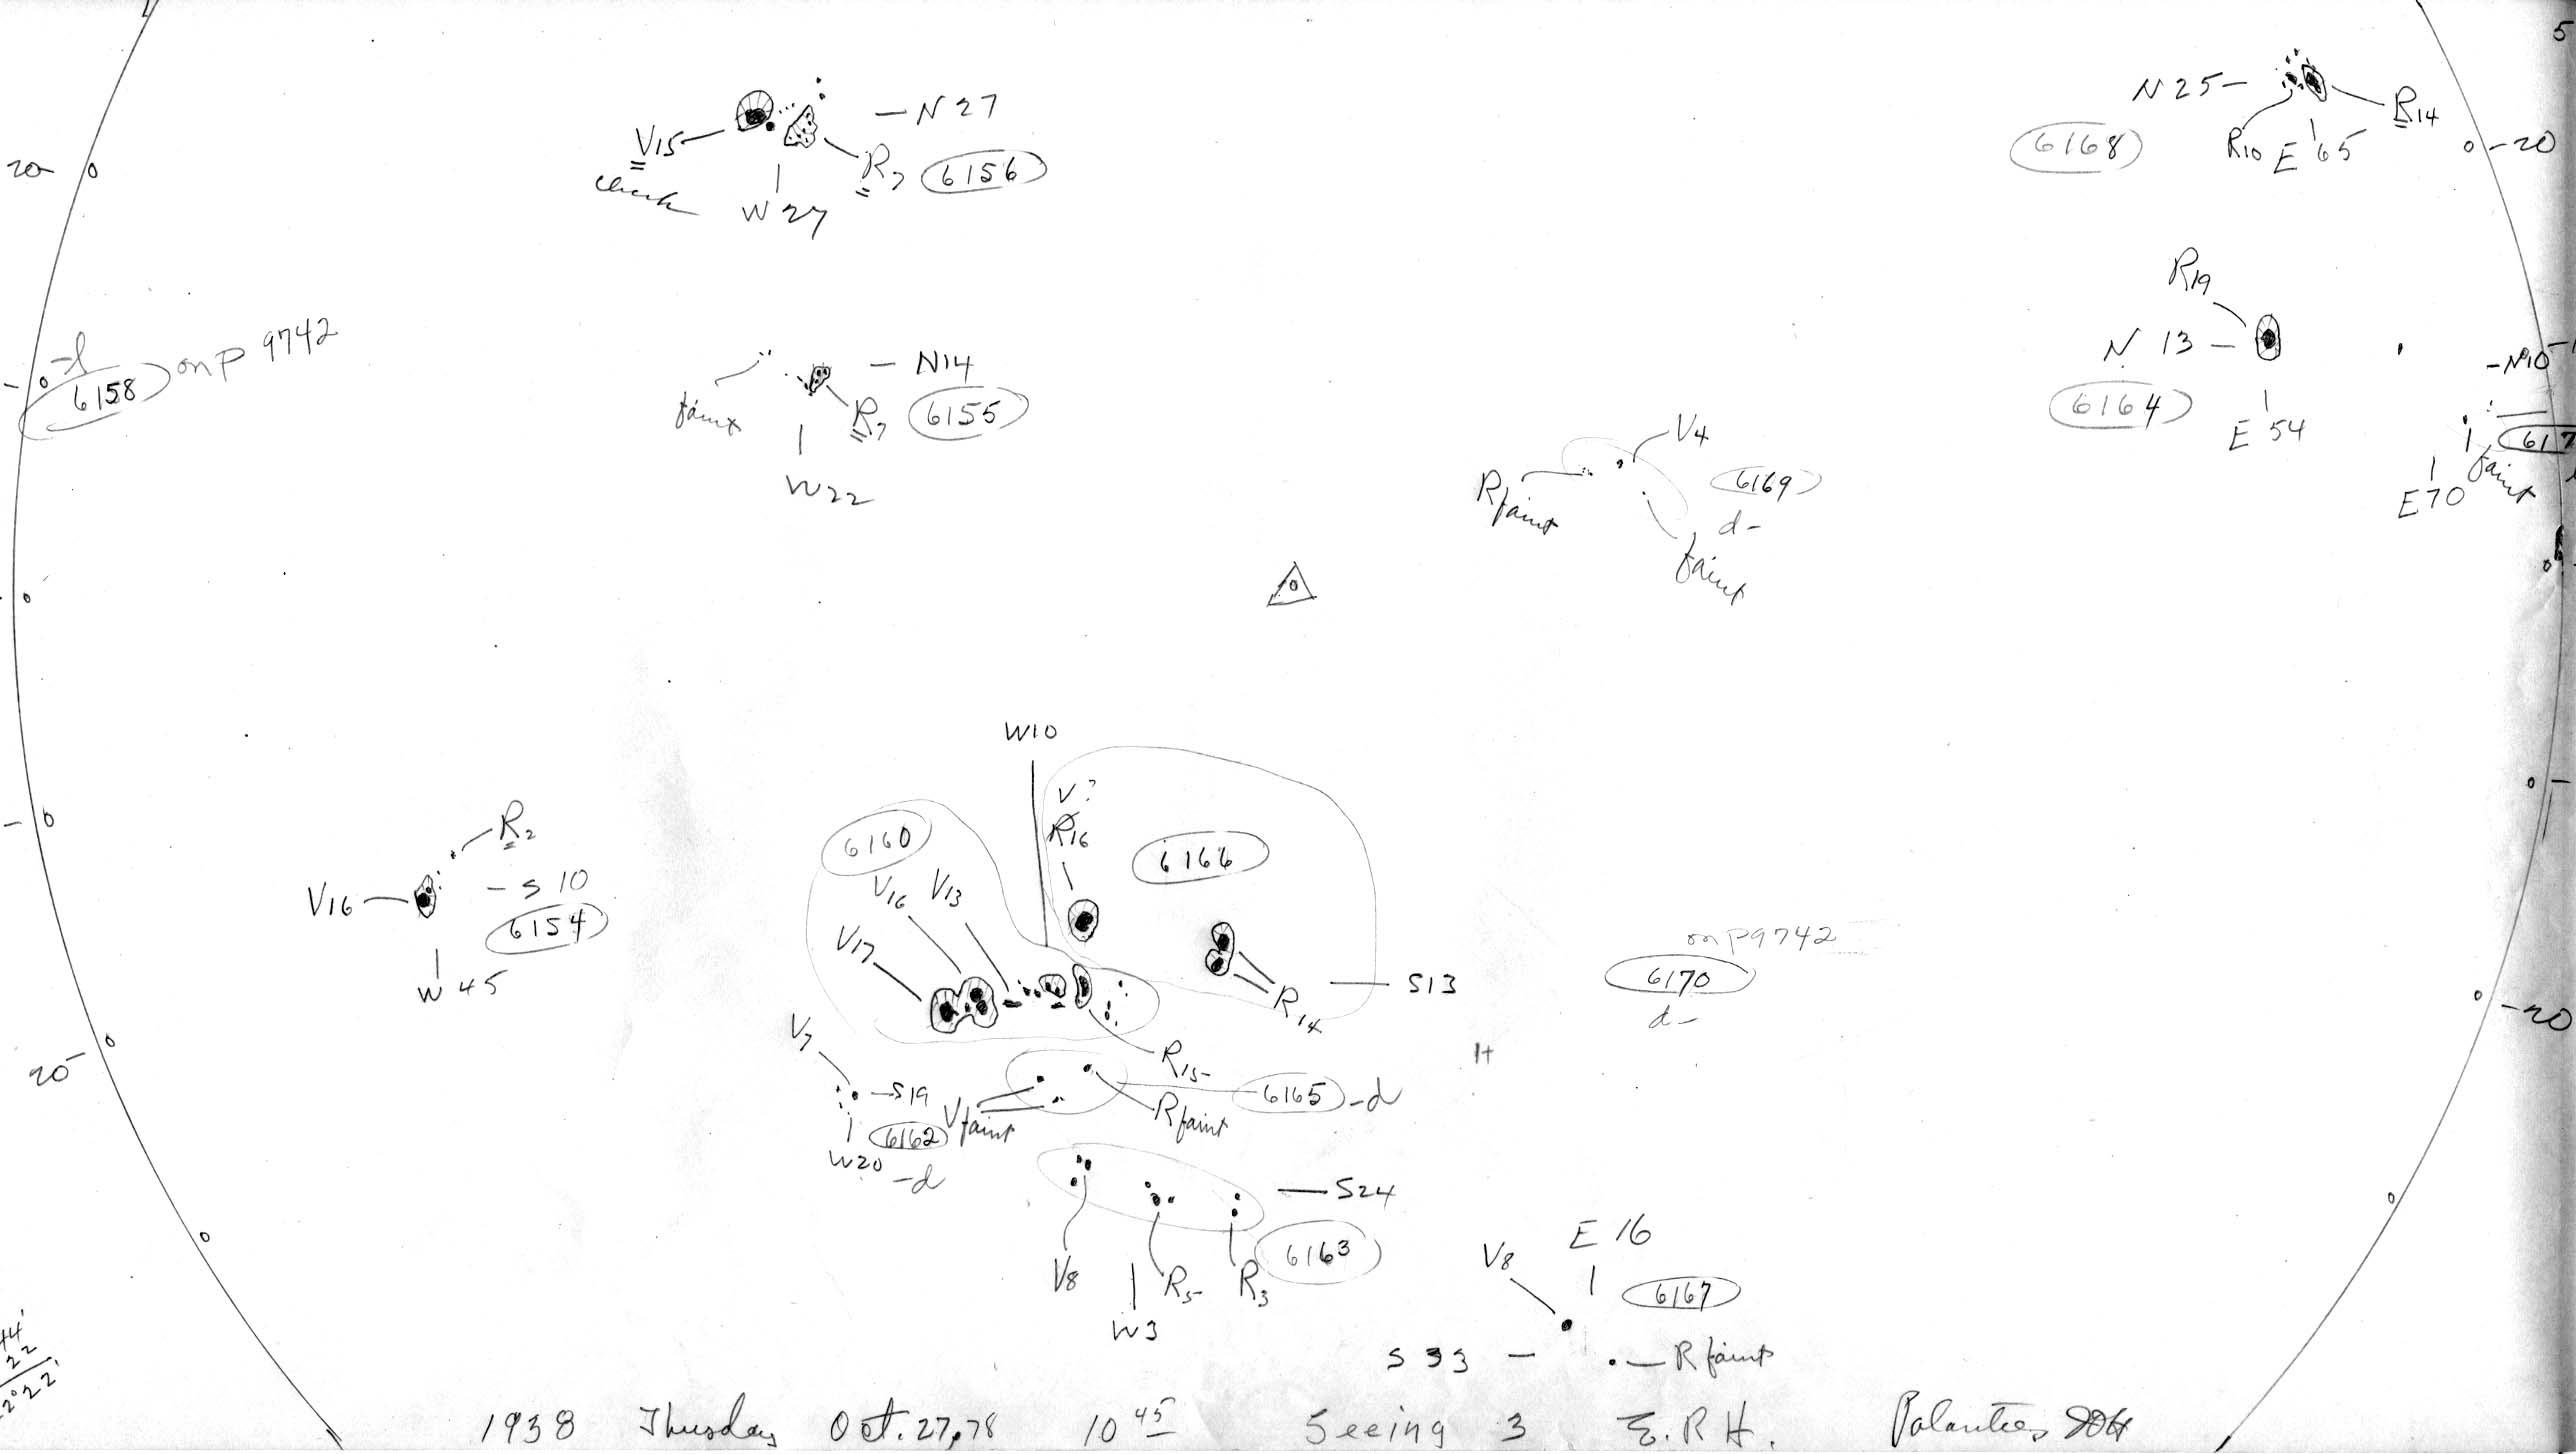 5
N 25 –
R14
6168
R10
E 65
– 20
– N 27
V15
check
R7
6156
W 27
20
R19
N 13 –
6164
E 54
– N10
617
faint
E70
– l
6158
on p 9742
– N14
faint
R7
6155
W22
V4
R faint
6169
d –
faint
0
W10
V?
R16
6166
6160
V16
V13
V17
R2
V16
– S 10
6154
W 45
R14
S13
on p 9742
6170
d –
– 20
20 –
V7
– S19
6162
W20
– d
V faint
R15
6165 – d
R faint
S24
6163
V8
R5
R3
W3
E 16
V8
6167
S 33 –
– R faint
44'
22
2°22'
1938 Thursday Oct. 27.78 10 45 Seeing 3 E.R.H. Polarities